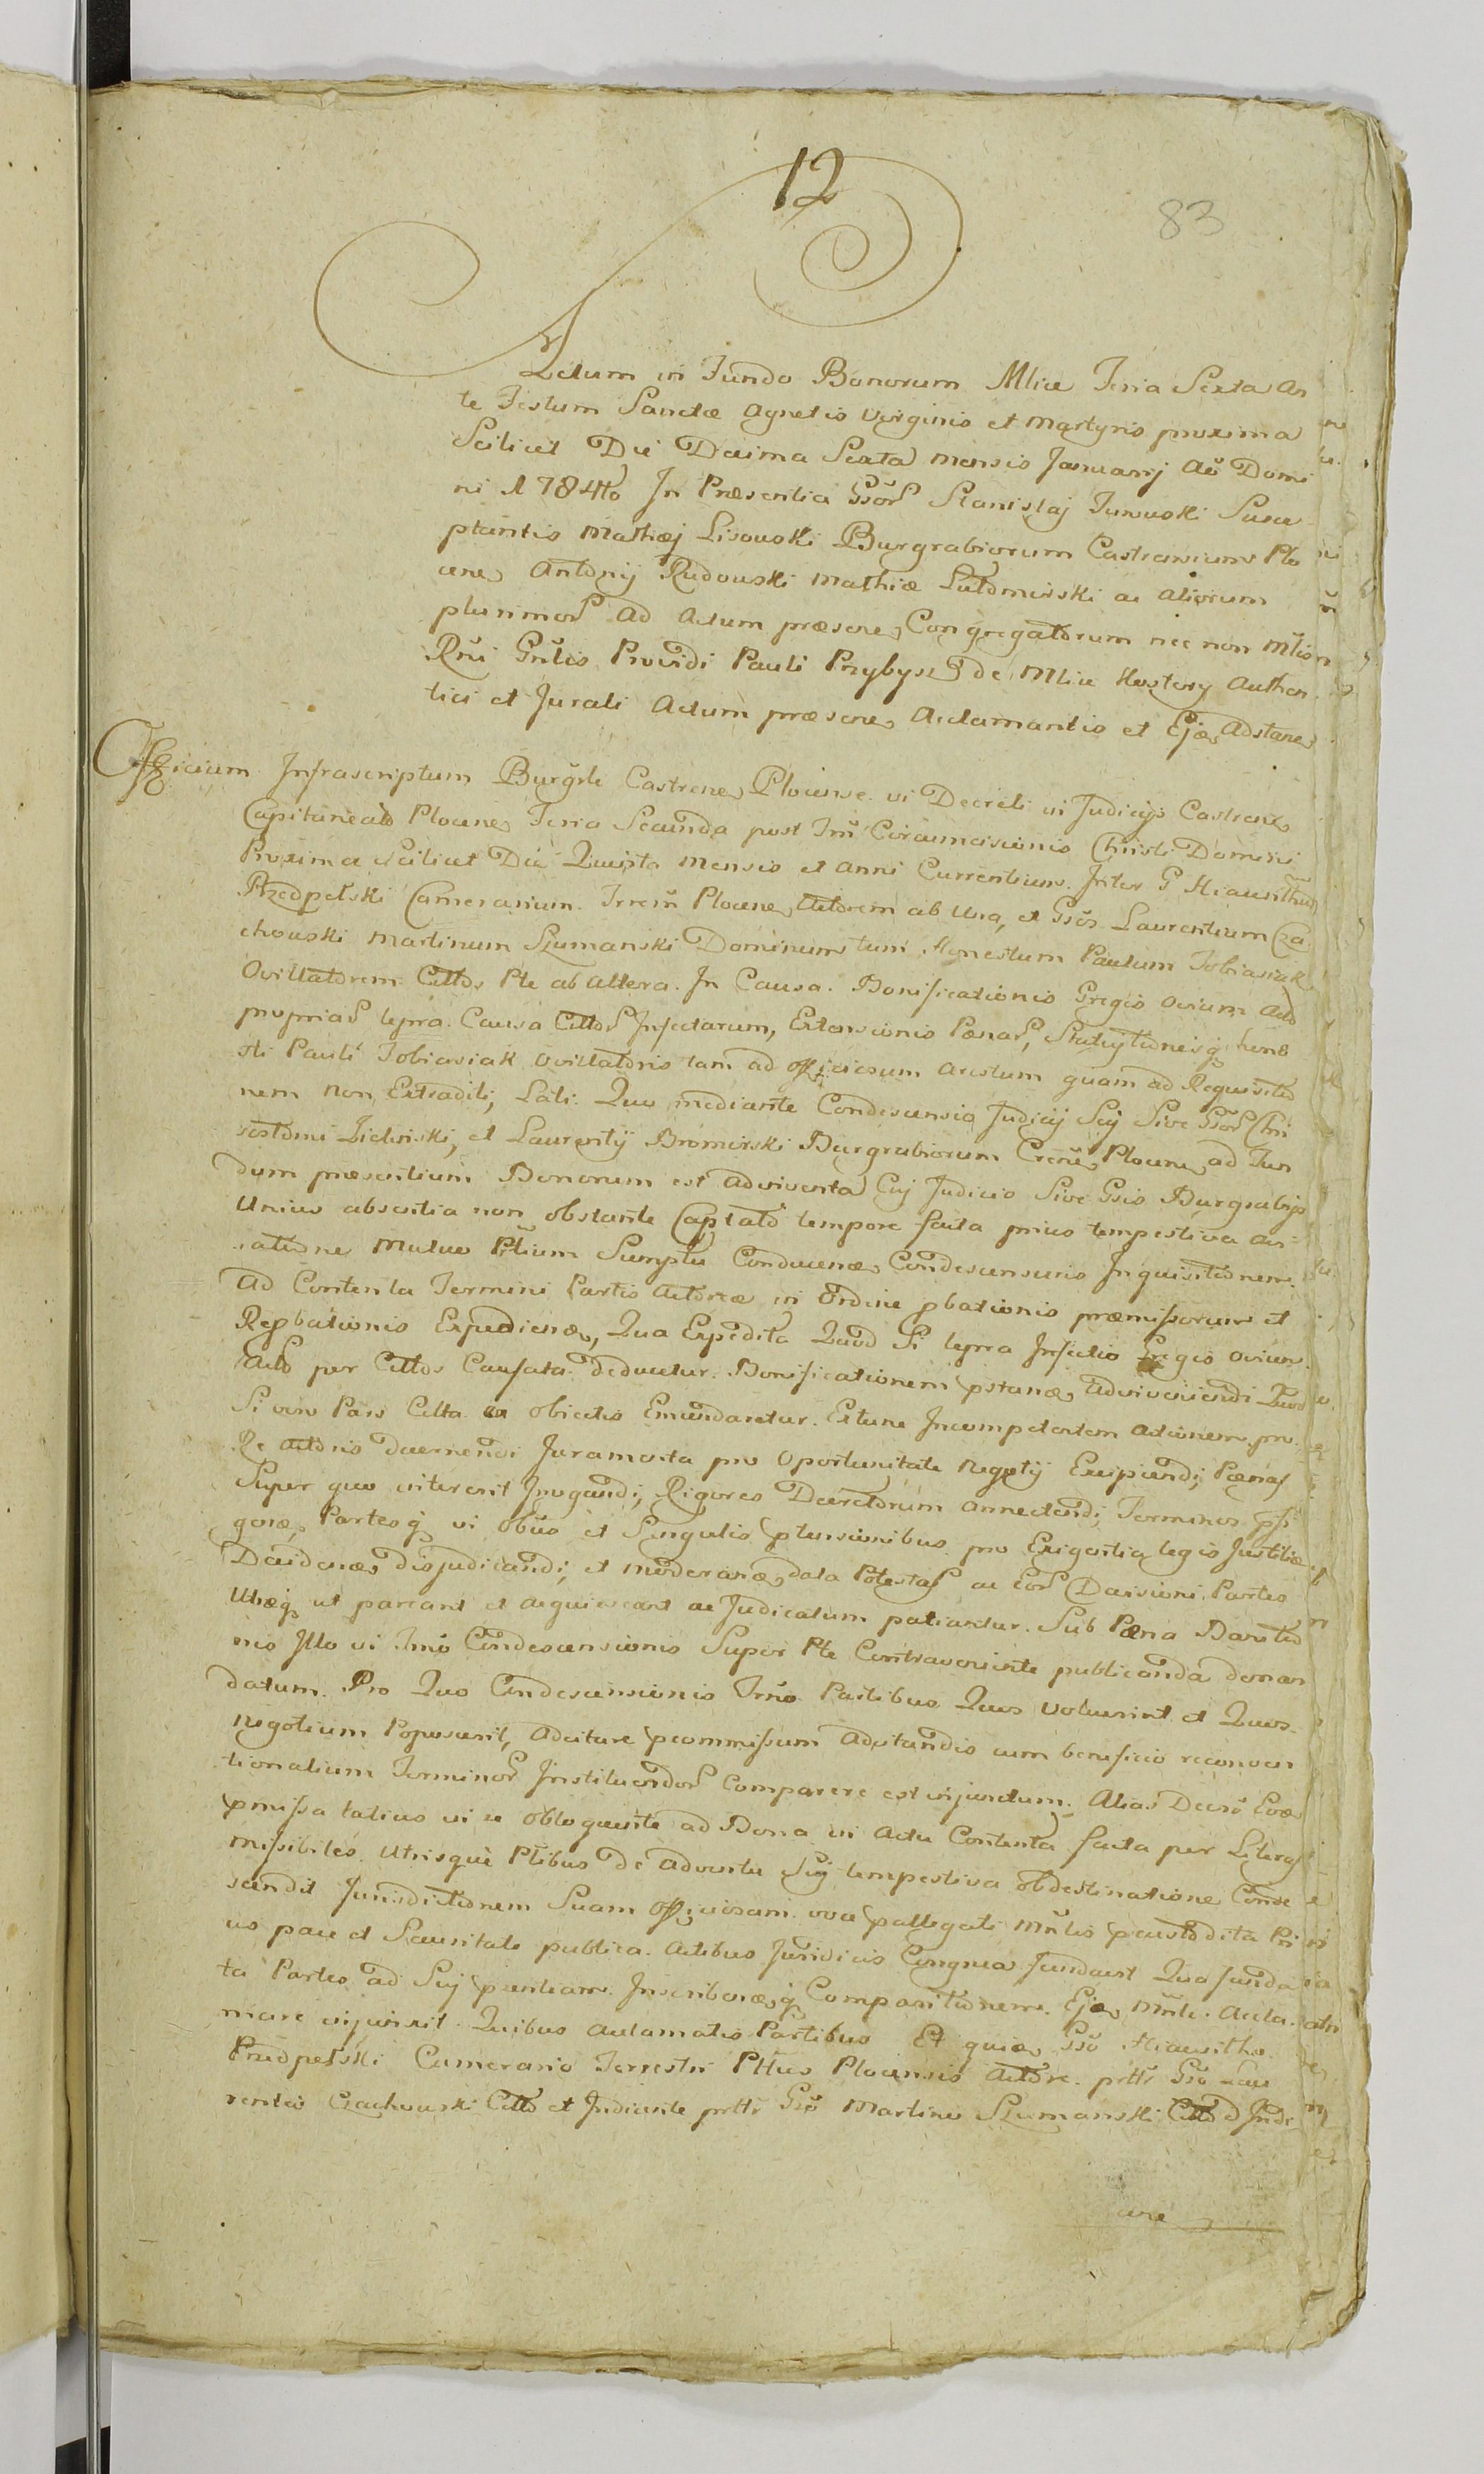 12
83
Actum in Fundo Bonorum Mlice Feria Sexta An
te Festum Sanctæ Agnetis Virginis et Martyris proxima
Scilicet Die Decima Sexta Mensis Januarij Aõ Domi
ni 1784to In Præsentia Gsor Stanislaj Turowski Susce
ptantis Mathæj Lisowski Burgrabiorum Castrensium Plo
cens Antonij Rudowski Mathiæ Lutomirski ac Aliorum
plurimor ad Actum præsens Congregatorum nec non Mlion
Rni Gnlis Providi Pauli Przybysz de Mlice Authen
tici et Jurati Actum præsens Acclamantis et Ejæ Adstans
Officium Infrascriptum Burgrle Castrens Plocense vi Decreti in Judicijs Castrens
Capitanealb Plocens Feria Secunda post Fm Circumcisionis Christi Domini
Proxima Scilicet Die Quinta Mensis et Anni Currentium Inter G Hiacinthum
Przedpełski Camerarium Trrem Plocens Actorem ab Una, et Gsos Laurentium Cza
chowski Martinum Szumanski Dominum tum Honestum Paulum Tobiasiak
Ovillatorem Cittos Pte ab Altera. In Causa Bonificationis Gregis Ovium Acto
propriar lepra Causa Cittor Infectarum, Extensionis Pænar, Statuitionisq hone
sti Pauli Tobiasiak Ovillatoris tam ad officiosum Arestum quam ad Requisitio
nem non Extraditi, Lati. Quo mediante Condescensio Judicij Sui Sive Gsor Chri
sostomi Zielinski, et Laurentij Bromirski Burgrabiorum Crens Plocens ad Fun
dum præsentium Bonorum est Adinventa Cui Judicio Sive Gsis Burgrabijs
Unius absentia non obstante Captato tempore facta prius tempestiva cer
tatione Mutuo Ptium Sumptu Conducens Condescensuris Inquisitionem
ad Contenta Termini Partis Actoreæ in Ordine pbationis præmissorum et
Repbationis Expediens, Qua Expedita Quod Si lepra Infectio Gregis Ovium
Acto per Cittos Causata deducetur. Bonificationem pstans Adinveniendi Quod
Si vero Pars Citta ex obiectis Emundaretur. Extunc Incompetentem Actionem pro
Re Actoris decernendi Juramenta pro Oportunitate Negotij Excipiendi, Pænas
Super quo intererit Irrogandi, Rigores Decretorum Annectendi, Terminos
gens Partesq in Obus et Singulis ptensionibus pro Exigentia legis Justitiæ
Decidens disjudicandi, et moderans data Potestas ac Eor Decisioni Partes
Utræq ut pareant et Acquiescant ac Judicatum patiantur. Sub Pæna Bannitio
nis Illo in Tmo Condescensionis Super Pte Contraveniente publicanda deman
datum. Pro Quo Condescensionis Trno Partibus Quos Voluerint et Quos
negotium Poposcerit, Adcitare pcommissum Adstandis cum beneficio reconven
tionalium Terminor Instituendor Comparere est injunctum. Alias Decro Evæ
pmissa latius in se obloquente ad Bona in Actu Contenta facta per Literas
missibiles Utrisque Ptibus de adventu Sui tempestiva obdestinatione Conde
scendit Jurisdictionem Suam officiosam voce pallegati Mnlis pcustodita Pri
us pace et Securitate publica Actibus Juridicis Congrua fundavit Qua funda
ta Partes ad Sui pntiam Inscribensq Comparitionem Ejæ Mnle Accla
mare injunxit. Quibus Aclamatis Partibus Et quiæ Gso Hiacintho
Przedpełski Camerario Terrestri Pttus Plocensis Actore prttr Gso Lau
rentio Czachowski Citto et Indicante prttr Gso Martino Szumanski Citto d Indi
cane